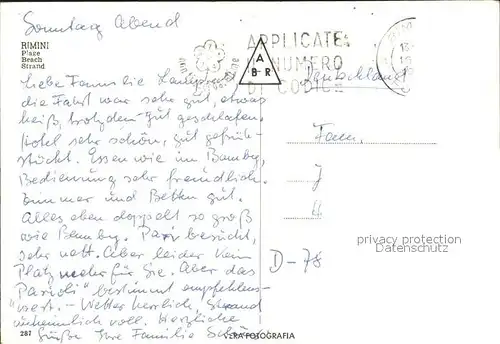 Sonntag Abend
RIMINI
Plage
Beach
Strand
APPLICATE
IL NUMERO
DI CODICE
A
B R
Deutschland
Liebe Familie
die Fahrt war sehr gut, etwas
heiß, trotzdem gut geschlafen.
Hotel sehr schön, gut gefrüh-
stückt. Essen wie im Bamby,
Bedienung sehr freundlich.
Zimmer und Betten gut.
Alles eben doppelt so groß
wie Bamby. Pari besucht,
sehr nett. Aber leider kein
Platz mehr für Sie. Aber das
"Parioli" bestimmt empfehlens-
wert. - Wetter herrlich, Strand
unheimlich voll. Herzliche
Grüße Ihre Familie
Fam.
D-78
privacy protection
by Samlerportal
287
VERA FOTOGRAFIA